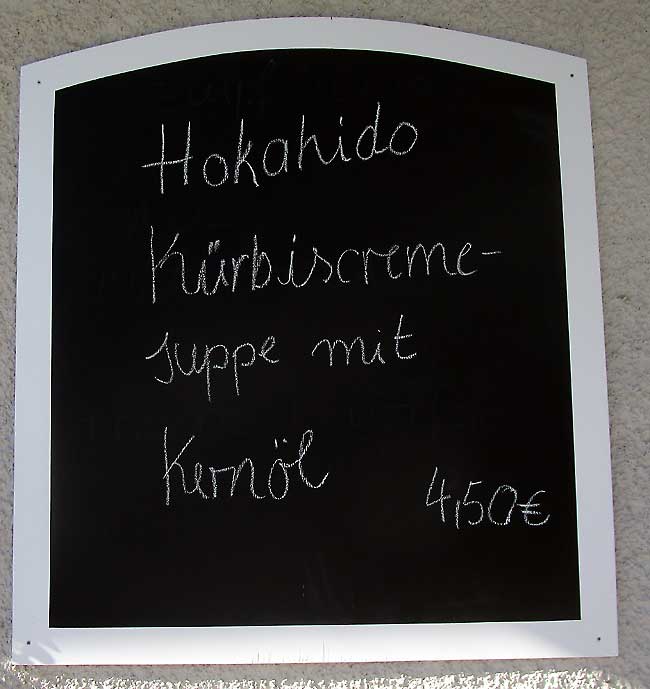 Hokahido
Kürbiscreme-
suppe mit
Kernöl
4,50€